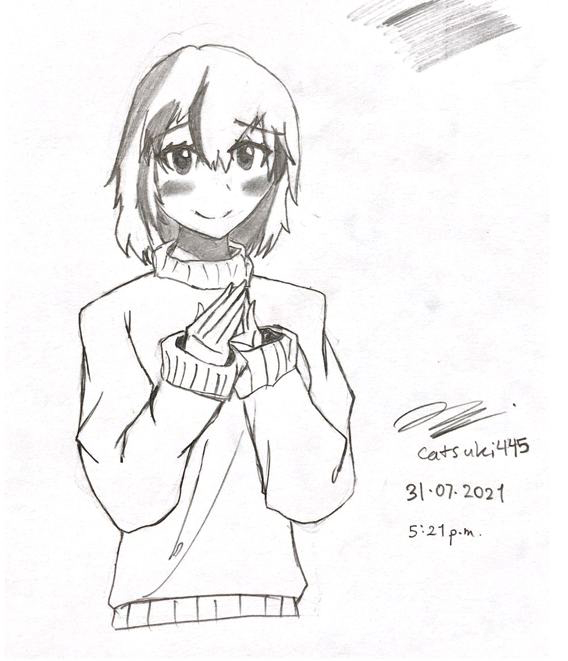 catsuki445
31.07.2021
5:21p.m.